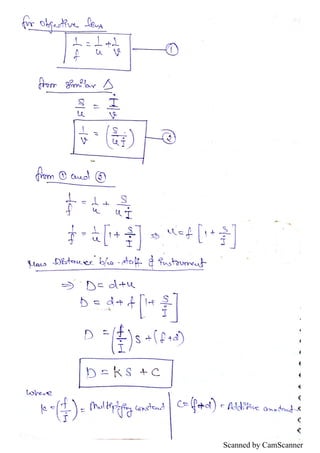 for objective lens
1/f = 1/u + 1/v — ①
from similar Δ
S/u = I/v
1/v = (S/uI) — ②
from ① and ②
1/f = 1/u + S/uI
1/f = 1/u [1 + S/I] ⇒ u = f [1 + S/I]
Distance b/w staff & instrument
⇒ D = d + u
D = d + f [1 + S/I]
D = (f/I) S + (f + d)
D = KS + C
where
K = (f/I) = Multiplying constant | C = (f + d) = Additive constant
Scanned by CamScanner